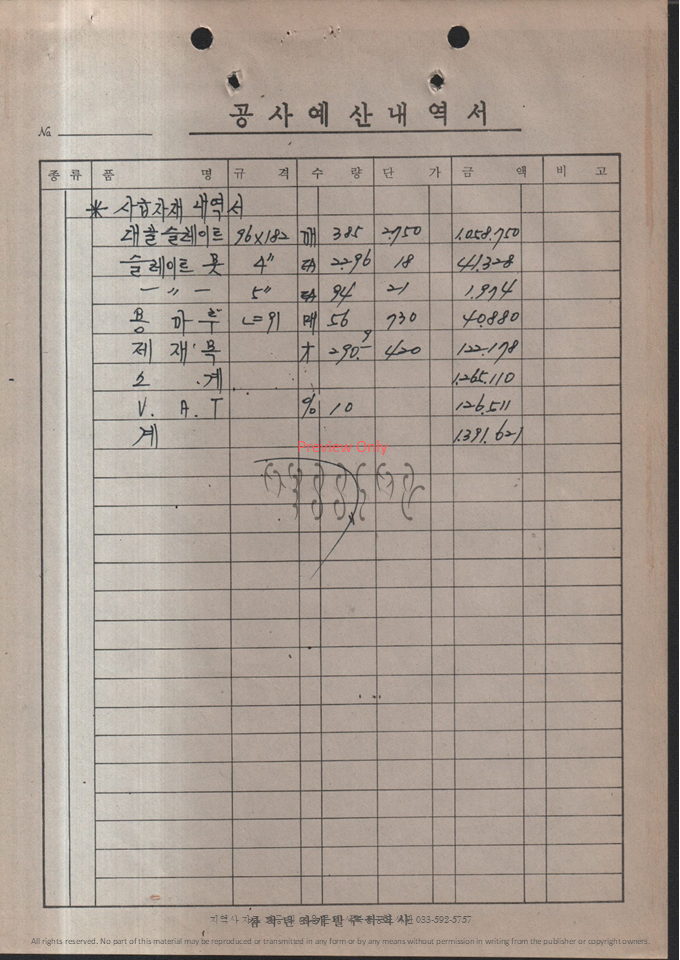 공사예산내역서
No
종류 품명 규격 수량 단가 금액 비고
* 사급자재 내역서
대골슬레이트 96×182 매 385 2,750 1,058,750
슬레이트 못 4" 2296 18 41,328
— 〃 — 5" 94 21 1,974
용마루 L=91 매 56 730 40,880
제재목 才 290.9 420 122,178
소계 1,265,110
V.A.T % 10 126,511
계 1,391,621
Preview Only
033-592-5757
All rights reserved. No part of this material may be reproduced or transmitted in any form or by any means without permission in writing from the publisher or copyright owners.